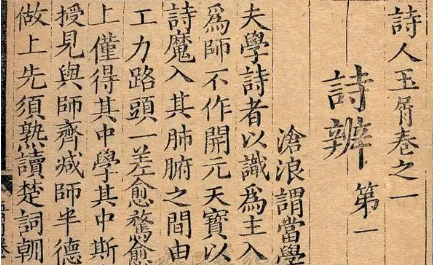 詩人玉屑卷之一
詩辨 第一
滄浪謂當學
夫學詩者以識為主入
為師不作開元天寶以
詩魔入其肺腑之間由
工力路頭一差愈騖愈
上僅得其中學其中斯
授見與師齊减師半德
做上先須熟讀楚詞朝